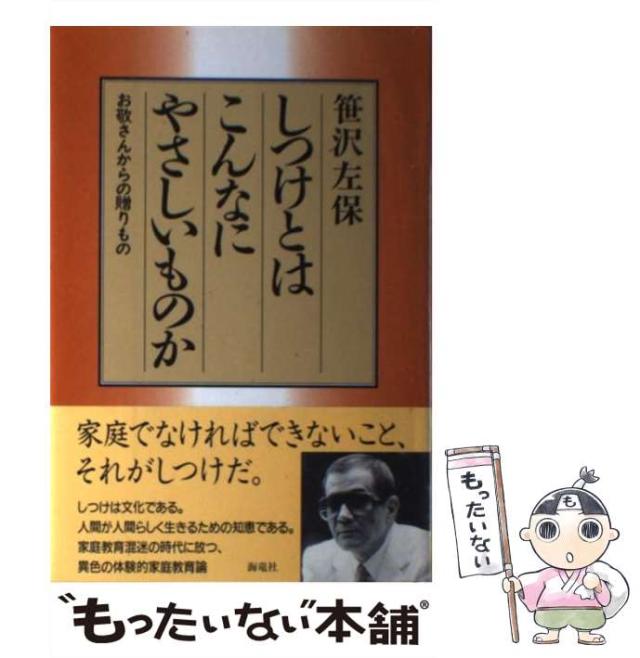 笹沢左保
しつけとは
こんなに
やさしいものか
お敬さんからの贈りもの
家庭でなければできないこと、
それがしつけだ。
しつけは文化である。
人間が人間らしく生きるための知恵である。
家庭教育混迷の時代に放つ、
異色の体験的家庭教育論
海竜社
も
もったいない
"もったいない"本舗®